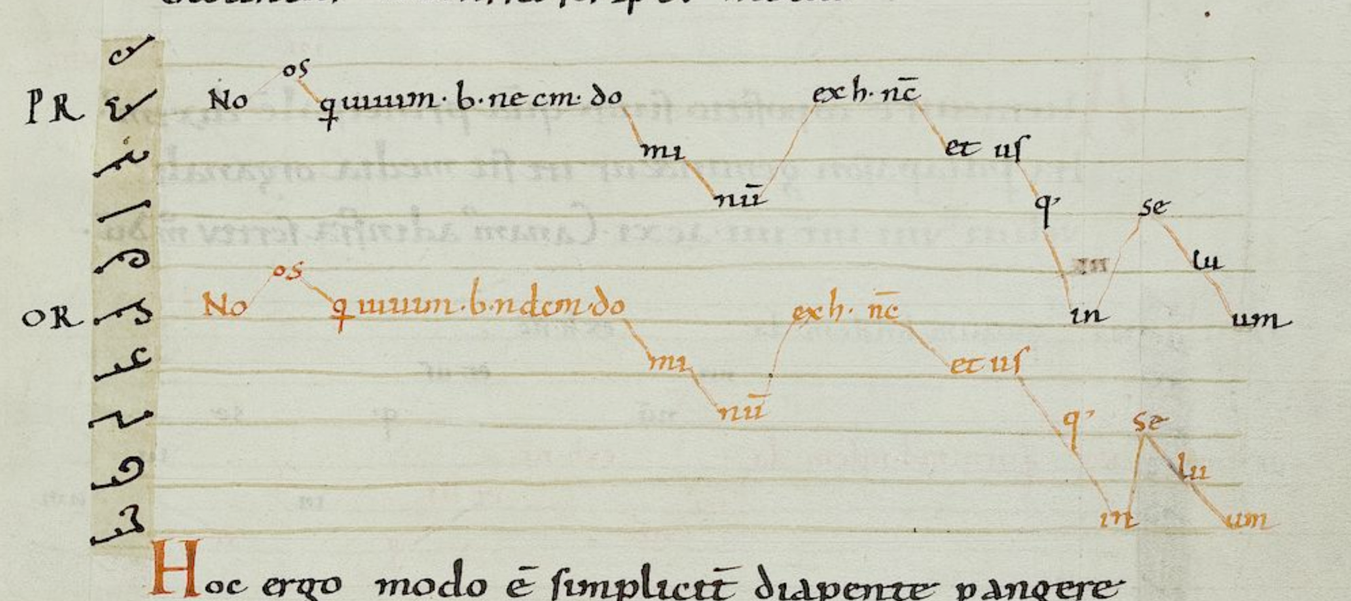 PR No os q uiuim · b · ne cm · do mi nū exh · nc̄ et uſ q' in se lu um
OR No os q uiuim · b · n dcm · do mi nū exh · nc̄ et uſ q' in se lu um
Hoc ergo modo ē ſimplicit̄ diapente pangere